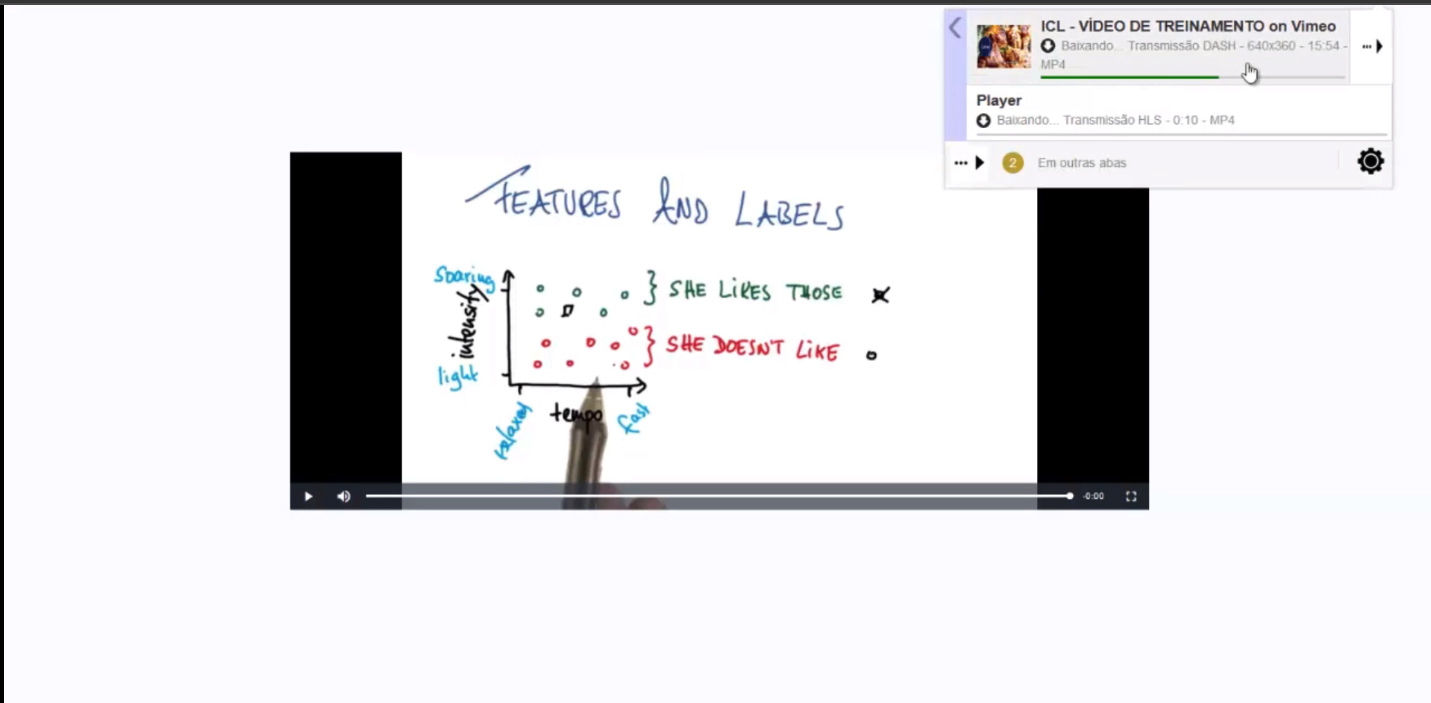 ICL - VÍDEO DE TREINAMENTO on Vimeo
Baixando... Transmissão DASH - 640x360 - 15:54 -
MP4
Player
Baixando... Transmissão HLS - 0:10 - MP4
2 Em outras abas
FEATURES AND LABELS
soaring
intensity
light
SHE LIKES THOSE
SHE DOESN'T LIKE
relaxed
tempo
fast
-0:00